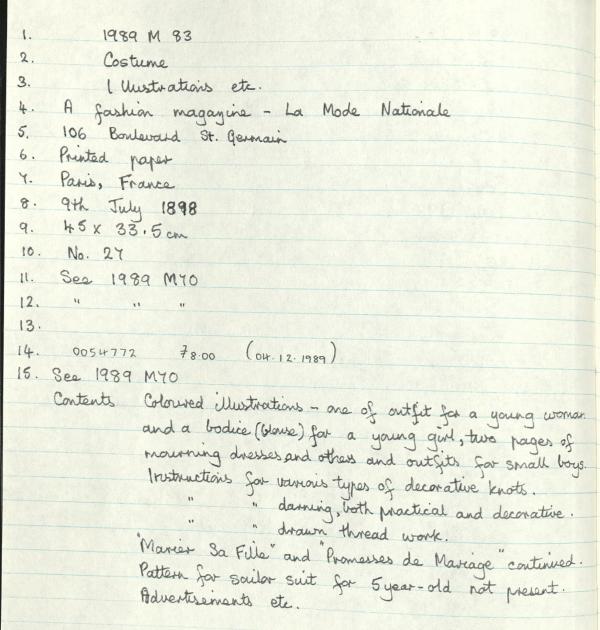 1. 1989 M 83
2. Costume
3. Illustrations etc.
4. A fashion magazine - La Mode Nationale
5. 106 Boulevard St. Germain
6. Printed paper
7. Paris, France
8. 9th July 1898
9. 45 x 33.5 cm
10. No. 27
11. See 1989 M70
12. " " "
13.
14. 0054772 £8.00 (04.12.1989)
15. See 1989 M70
Contents Coloured illustrations - one of outfit for a young woman
and a bodice (blouse) for a young girl, two pages of
mourning dresses and others and outfits for small boys.
Instructions for various types of decorative knots.
" " darning, both practical and decorative.
" " drawn thread work.
"Marier Sa Fille" and "Promesses de Mariage" continued.
Pattern for sailor suit for 5 year-old not present.
Advertisements etc.